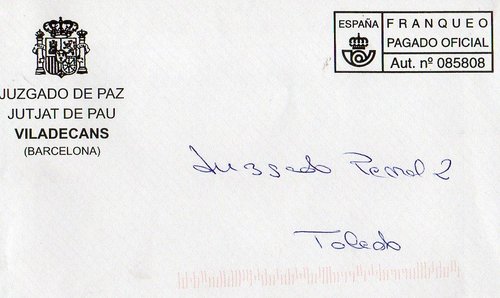 JUZGADO DE PAZ
JUTJAT DE PAU
VILADECANS
(BARCELONA)
ESPAÑA
FRANQUEO
PAGADO OFICIAL
Aut. nº 085808
Juzgado Penal 2
Toledo